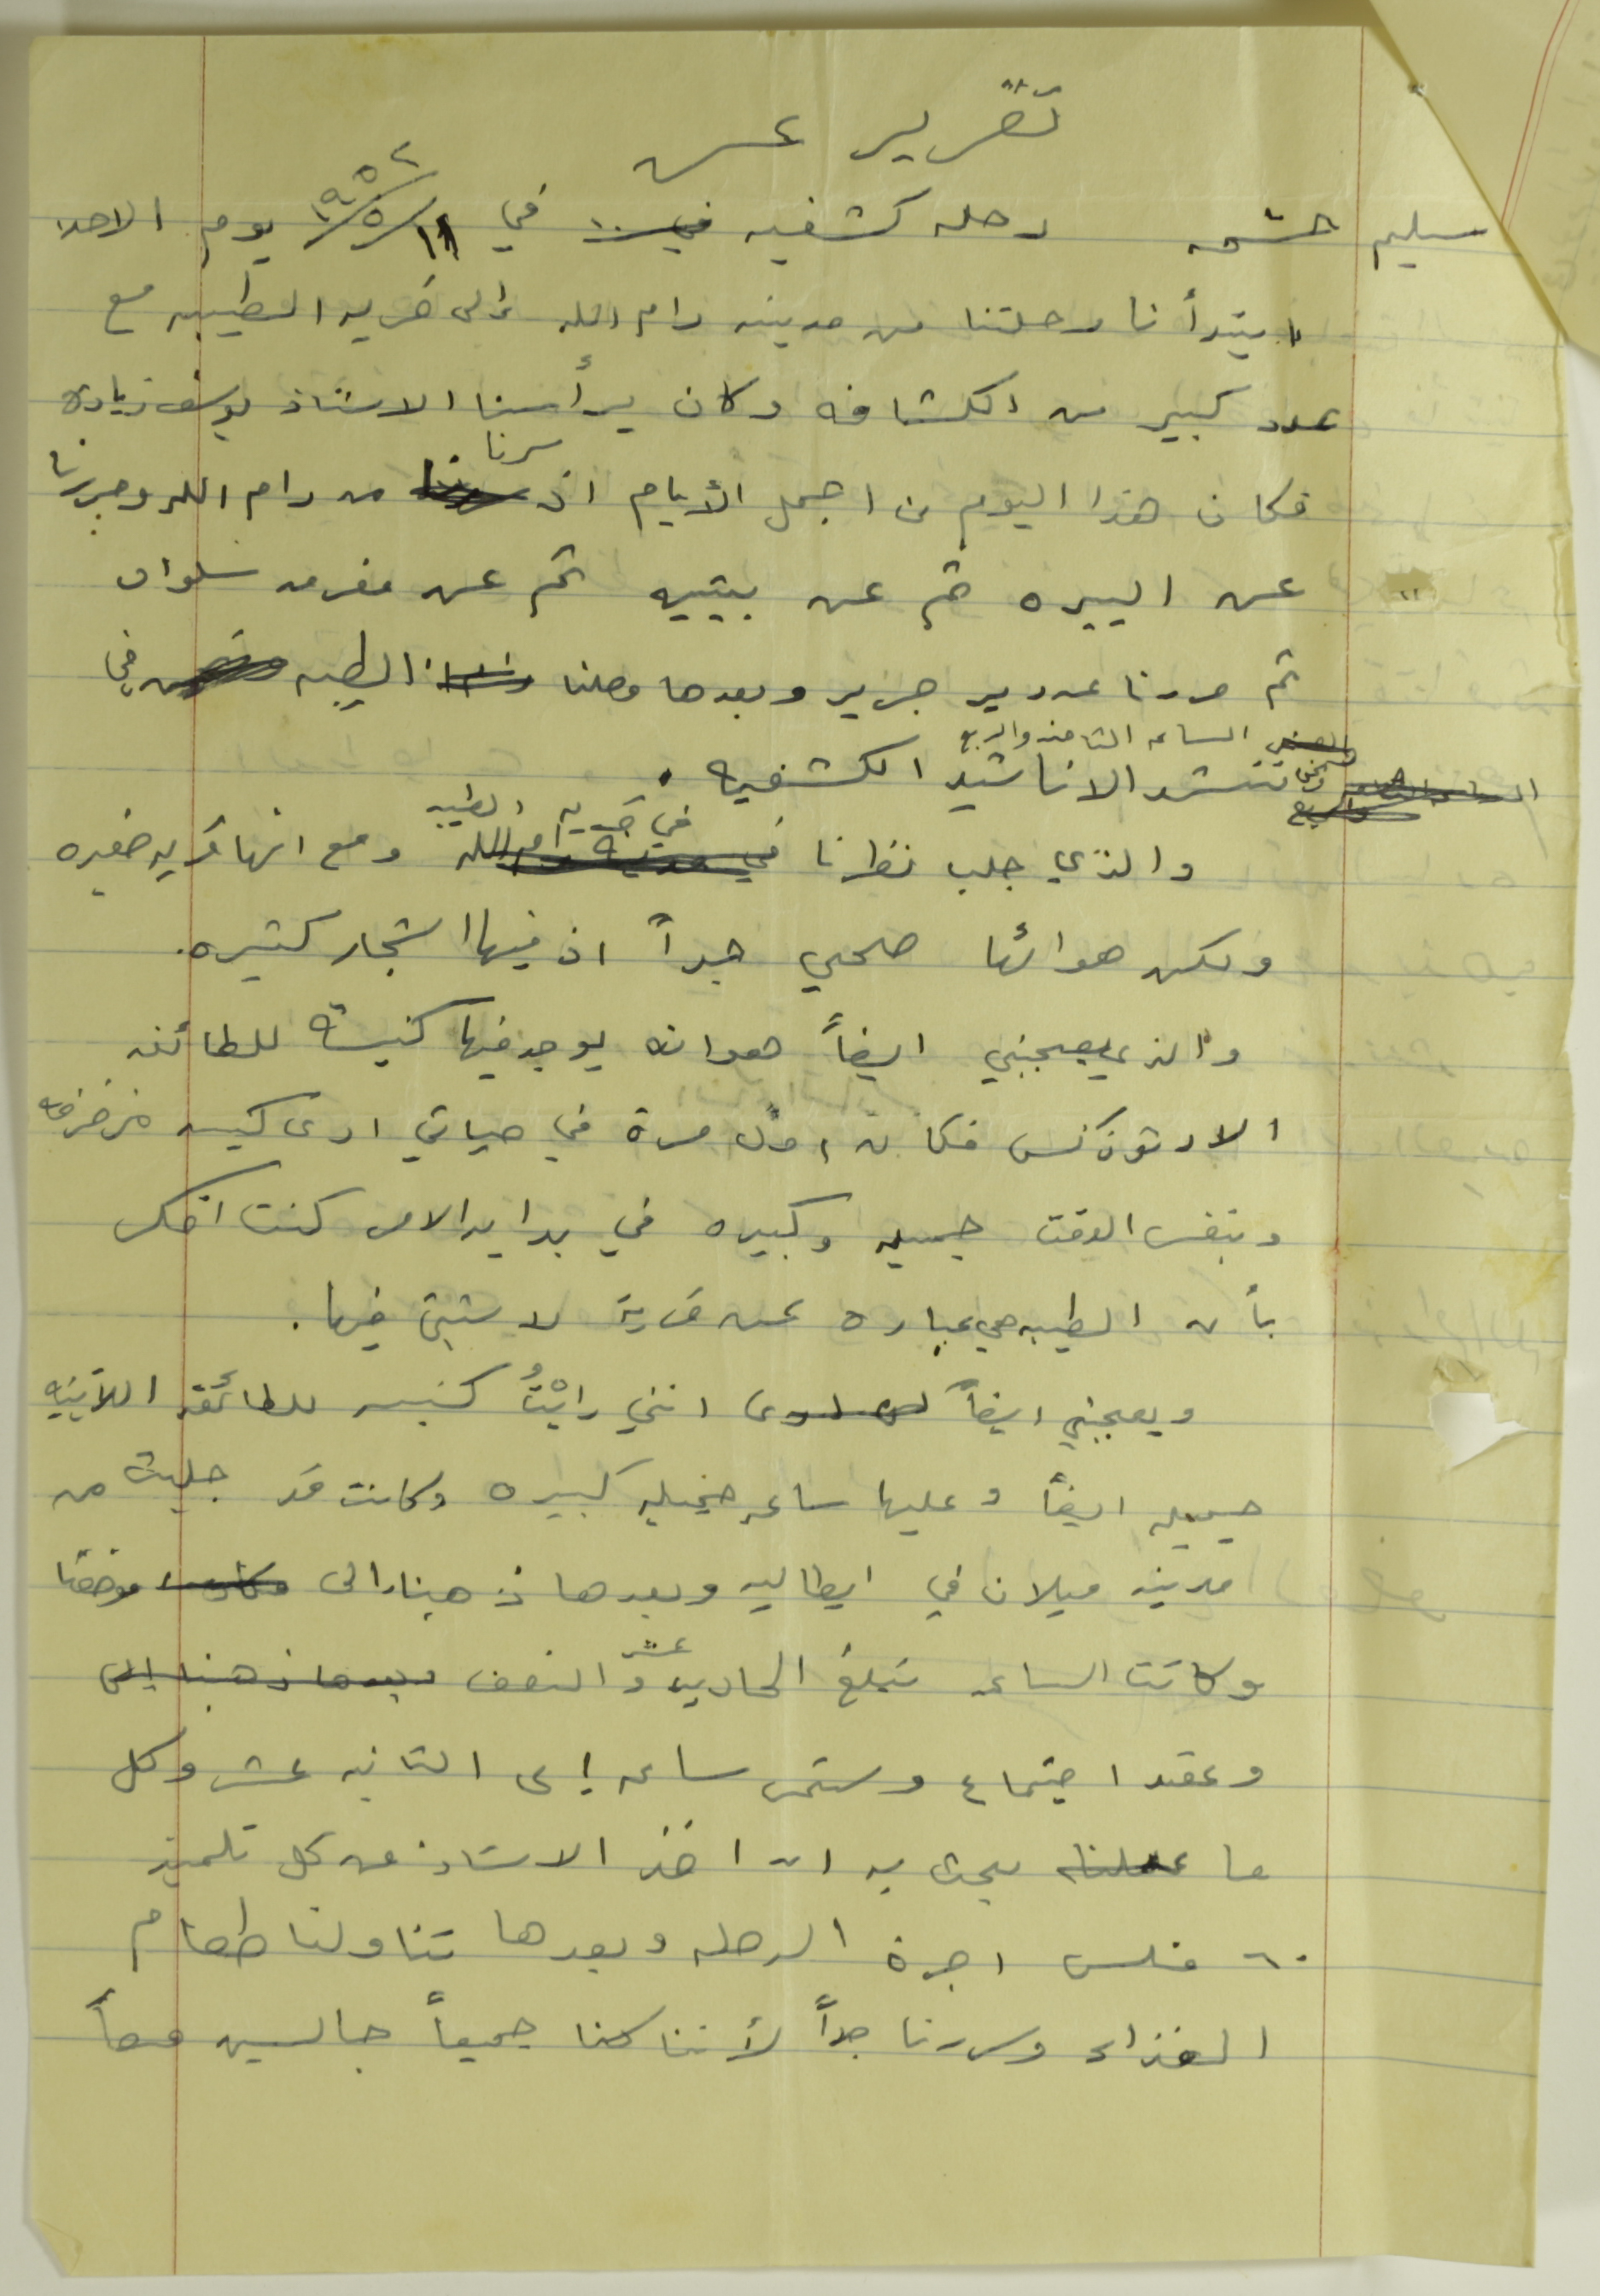 تقرير عن
سليم حشمه رحله كشفيه في ١١/٥/١٩٥٢ يوم الاحد
ابتدأنا رحلتنا من مدينه رام الله إلى قريه الطيبه مع
عدد كبير من الكشافه وكان يرأسنا الاستاذ يوسف زياده
فكان هذا اليوم من اجمل الأيام اذ سرنا من رام الله ومررنا
عن البيره ثم عن بيتيه ثم عن مفرق سلواد
ثم مررنا عن دير جرير وبعدها وصلنا الطيبه في
الساعه الثامنه والربع
ونحن ننشد الاناشيد الكشفيه .
والذي جلب نظرنا في قرية الطيبه ومع انها قريه صغيره
ولكن هوائها صحي جداً اذ فيها اشجار كثيره.
والذي يعجبني ايضاً هو انه يوجد فيها كنيسة للطائفه
الارثوذكس فكان اول مرة في حياتي ارى كنيسه مزخرفه
وبنفس الوقت جميله وكبيره في بدايه الامر كنت افكر
بأن الطيبه هي عباره عن قرية لا شيئ فيها.
ويعجبني ايضاً انني رايْتُ كنيسه للطائفة اللاتينيه
جميله ايضاً وعليها ساعه جميله كبيره وكانت قد جلبت من
مدينه ميلان في ايطاليه وبعدها ذهبنا الى موقعنا
وكانت الساعه تبلغ الحاديه عشر والنصف
وعقد اجتماع وستمر ساعه إلى الثانيه عشر وكل
ما عملناه بحث به ان اخذ الاستاذ من كل تلميذ
٦٠ فلس اجرة الرحله وبعدها تناولنا طعام
الغذاء وسررنا جداً لأننا كنا جميعاً جالسين معاً